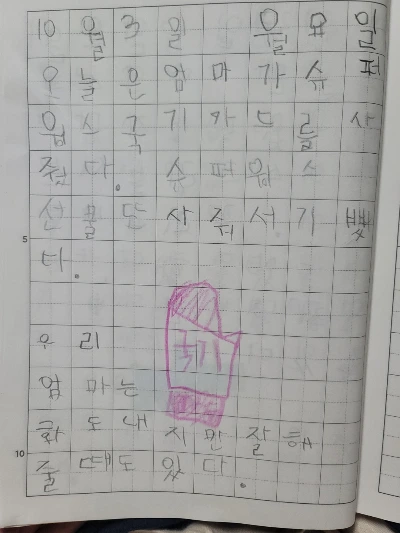 10 월 3 일 월 요 일
오 늘 은 엄 마 가 슈 퍼
윙 스 쿡 기 카 드 를 사
줬 다. 슈 퍼 윙 스
선 물 또 사 줘 서 기 뻤
다.
쿡기
우 리
엄 마 는
화 도 내 지 만 잘 해
줄 때 도 있 다.